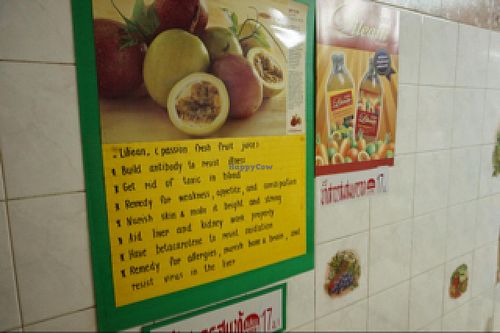 Liliean, (passion fresh fruit juice)
* Build antibody to resist illness
* Get rid of toxic in blood
* Remedy for weakness, appetite, and constipation
* Norish skin & make it bright and strong
* Aid liver and kidney work properly
* Have betacarotene to resist oxidation
* Remedy for allergies, nurish bone & brain, and
resist virus in the liver
HappyCow
Lileean
17.
17.